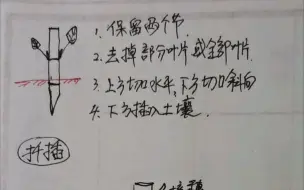 1. 保留两个节
2. 去掉部分叶片或全部叶片
3. 上方切口水平，下方切口斜向
4. 下方插入土壤.
扦插